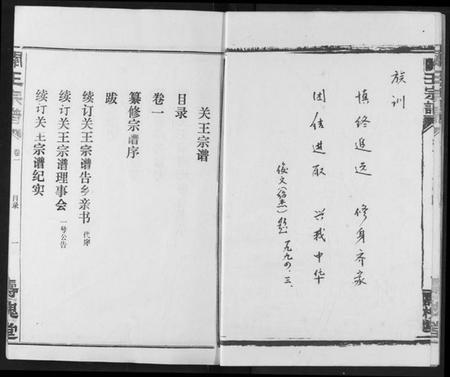 族训
慎终追远 修身齐家
团结进取 兴我中华
一九九四.三.
关王宗谱
目录
卷一
纂修宗谱序
跋
续订关王宗谱告乡亲书 代序
续订关王宗谱理事会 一号公告
续订关王宗谱纪实
关王宗谱
卷一
目录
一